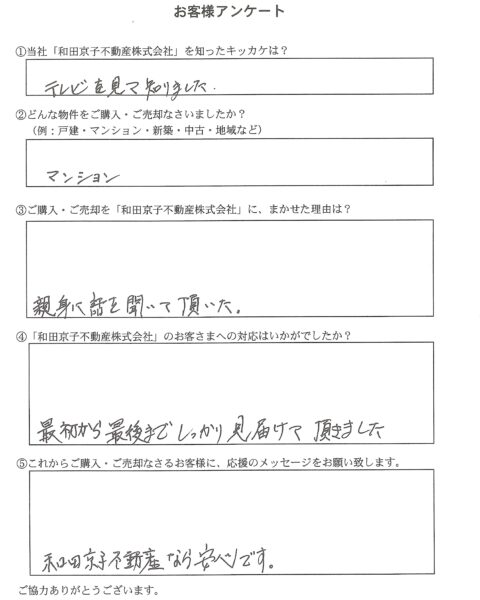 お客様アンケート
①当社「和田京子不動産株式会社」を知ったキッカケは？
テレビを見て知りました.
②どんな物件をご購入・ご売却なさいましたか？
（例：戸建・マンション・新築・中古・地域など）
マンション
③ご購入・ご売却を「和田京子不動産株式会社」に、まかせた理由は？
親身に話を聞いて頂いた。
④「和田京子不動産株式会社」のお客さまへの対応はいかがでしたか？
最初から最後まで しっかり 見届けて 頂きました
⑤これからご購入・ご売却なさるお客様に、応援のメッセージをお願い致します。
和田京子不動産なら安心です。
ご協力ありがとうございます。